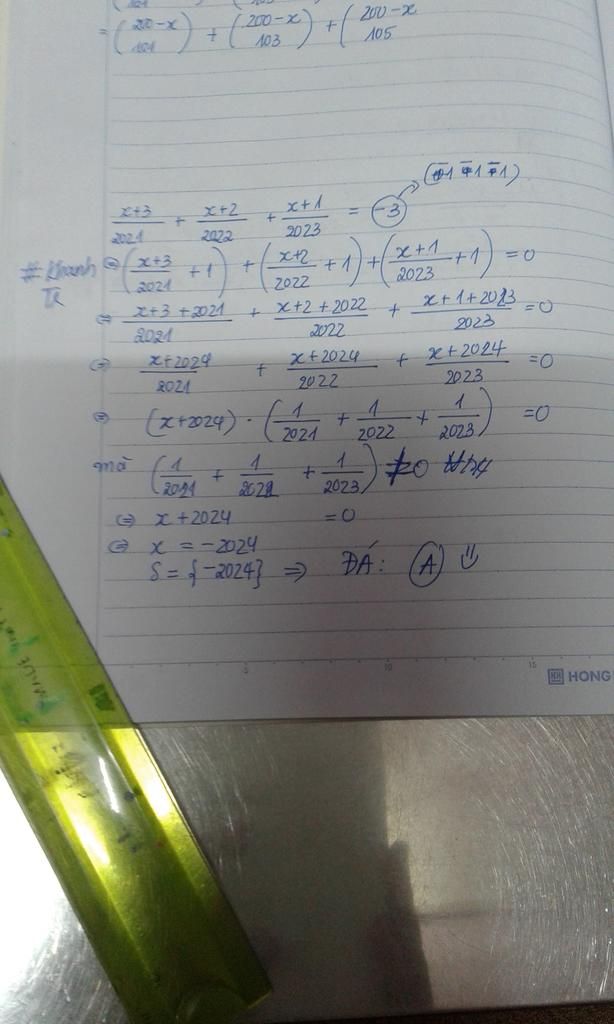 = (200-x / 101) + (200-x / 103) + (200-x / 105)
(-1 -1 -1)
x+3/2021 + x+2/2022 + x+1/2023 = -3
# Khanh
⇔ (x+3/2021 + 1) + (x+2/2022 + 1) + (x+1/2023 + 1) = 0
⇔ x+3+2021/2021 + x+2+2022/2022 + x+1+2023/2023 = 0
⇔ x+2024/2021 + x+2024/2022 + x+2024/2023 = 0
⇔ (x+2024) . (1/2021 + 1/2022 + 1/2023) = 0
mà (1/2021 + 1/2022 + 1/2023) ≠ 0
⇔ x+2024 = 0
⇔ x = -2024
S = {-2024} ⇒ ĐÁ: A
5 10 15
HONG